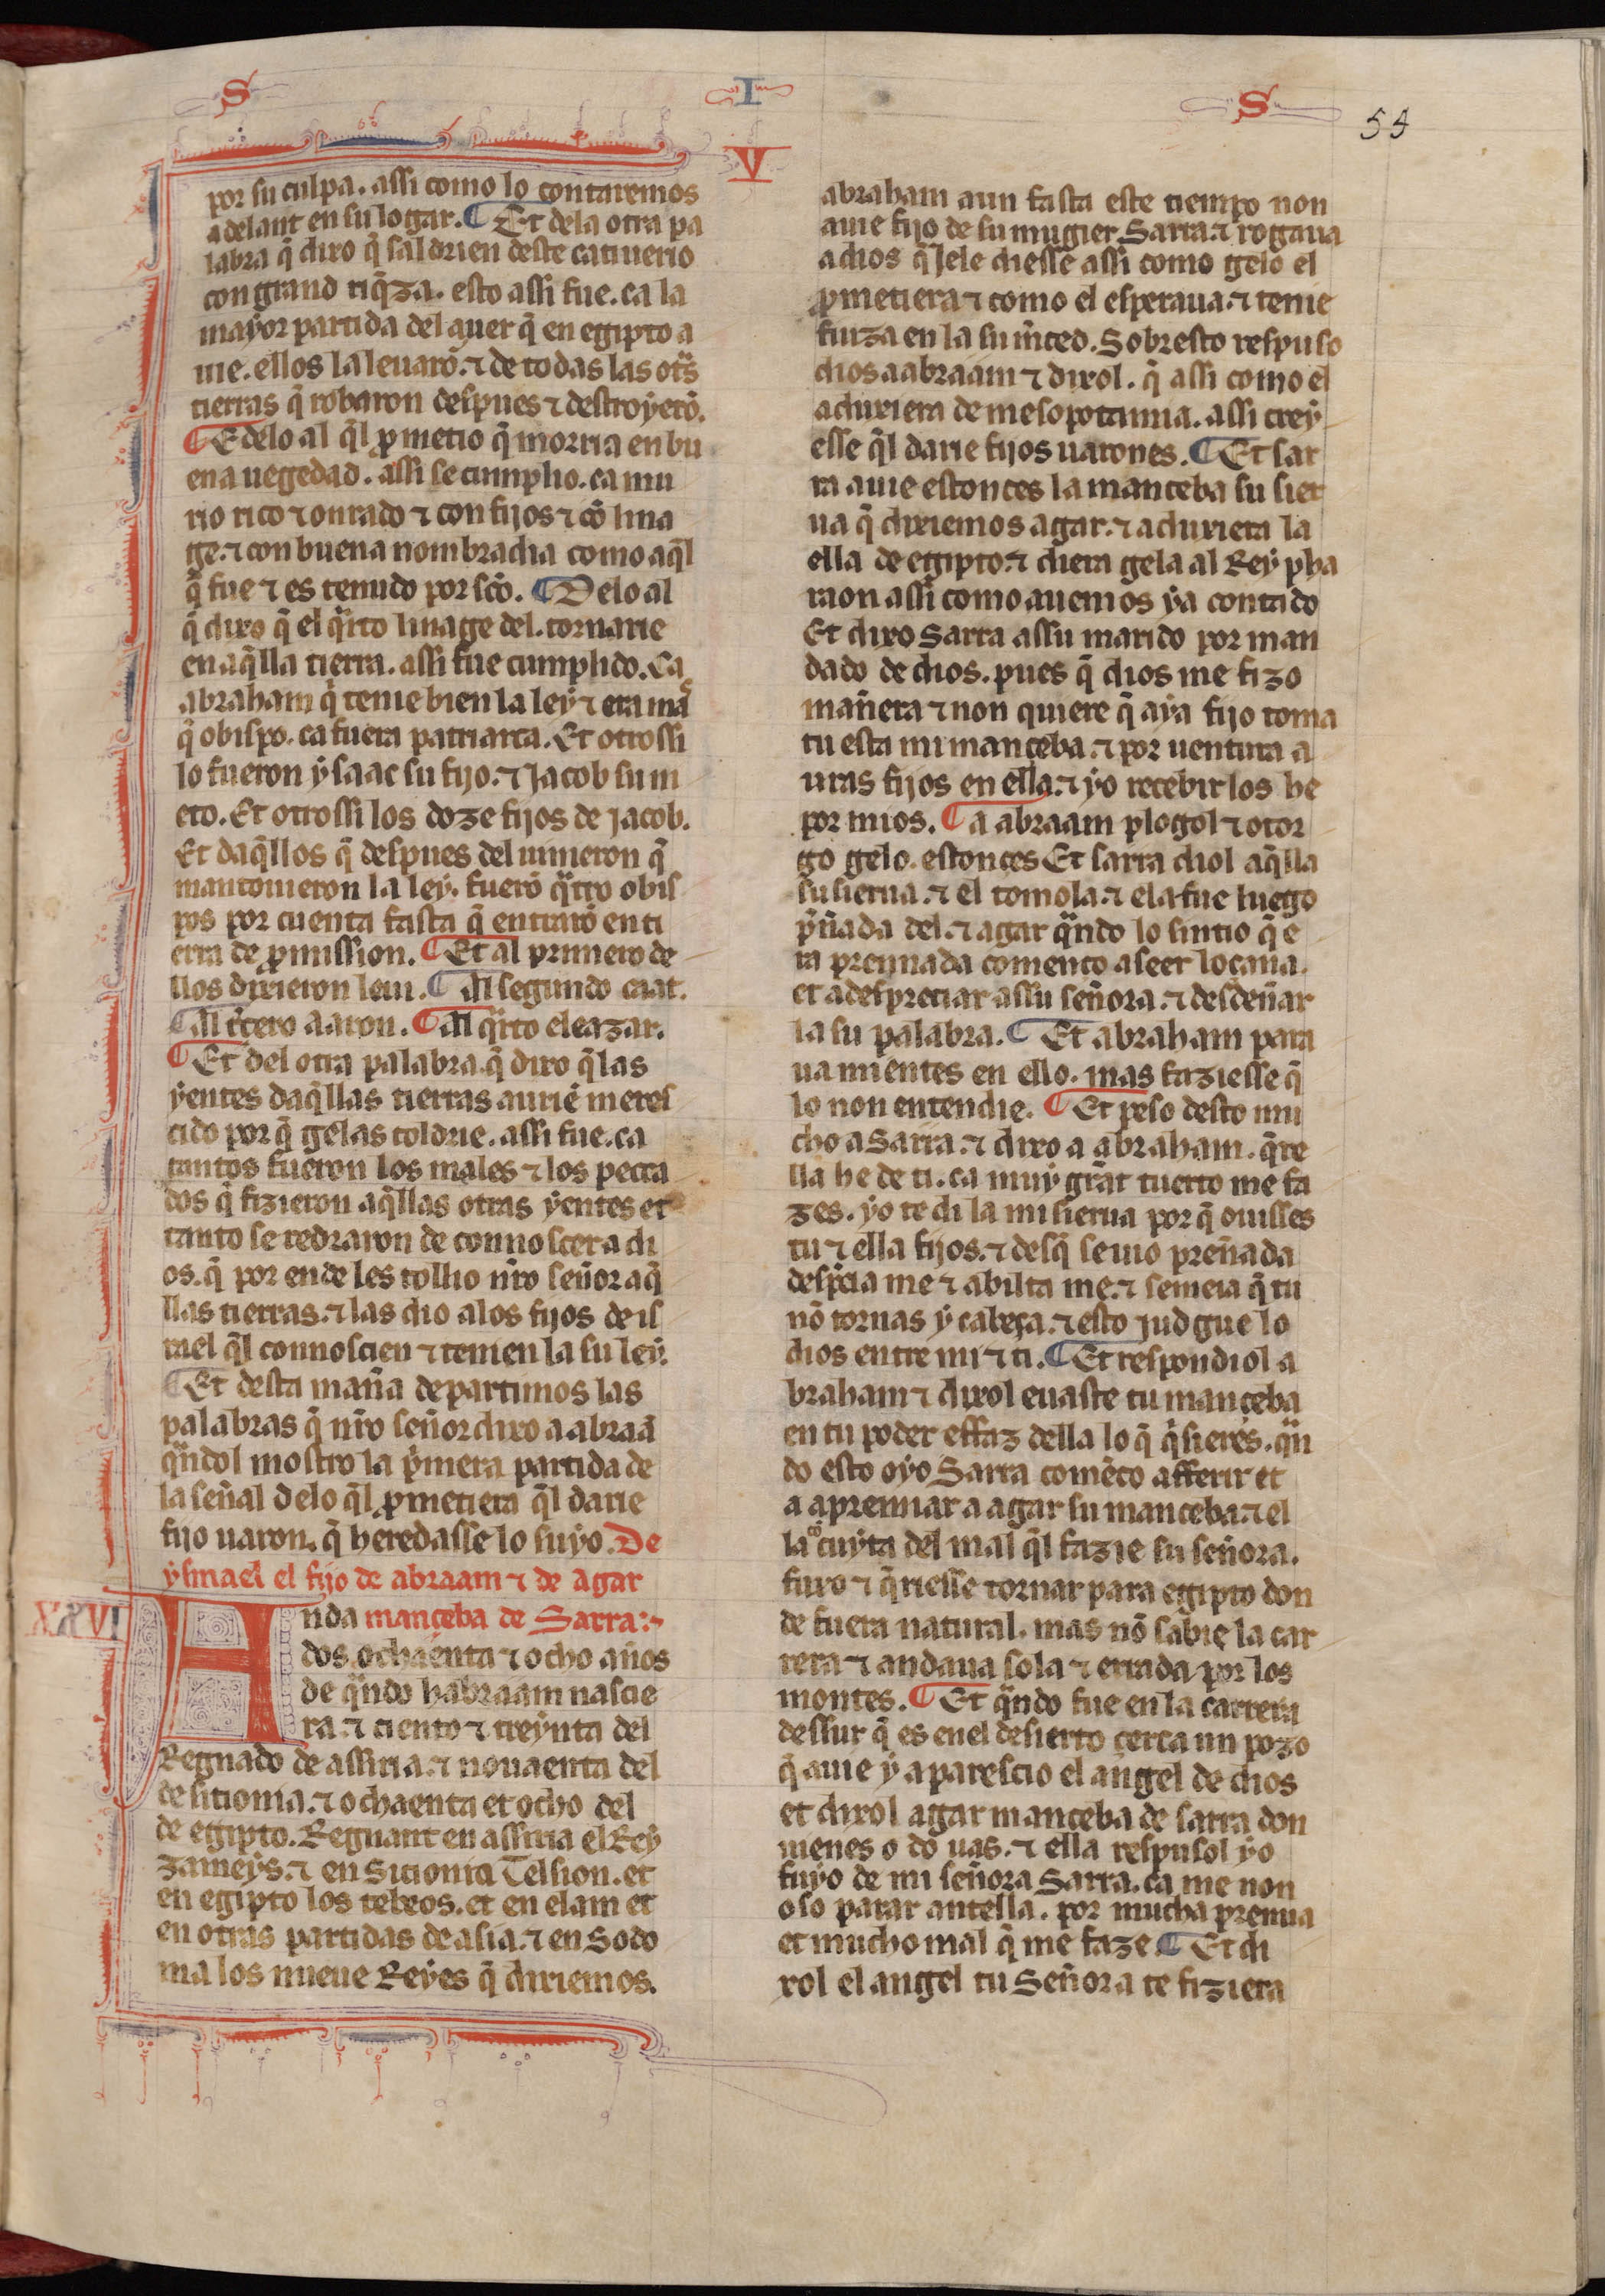 S I S
54
V
por su culpa. assi como lo contaremos
adelant en su logar. ¶ Et dela otra pa
labra q̃ dixo q̃ saldrien deste catiuerio
con grand riq̃za. esto assi fue. ca la
mayor partida del auer q̃ en egipto a
uie. ellos la leuarõ. ⁊ de todas las otͣs
tierras q̃ robaron despues ⁊ destroyerõ.
¶ E delo al q̃l ꝓmetio q̃ morria en bu
ena uegedad. assi se cumplio. ca mu
rio rico ⁊ onrado ⁊ con fijos ⁊ cõ lina
ge. ⁊ con buena nombradia como aq̃l
q̃ fue ⁊ es tenudo por sc̃o. ¶ Delo al
q̃ dixo q̃ el qͣrto linage del. tornarie
en aq̃lla tierra. assi fue cumplido. Ca
abraham q̃ tenie bien la ley ⁊ era mas
q̃ obispo. ca fuera patriarca. Et otrossi
lo fueron ysaac su fijo. ⁊ Jacob su ni
eto. Et otrossi los doze fijos de jacob.
Et daq̃llos q̃ despues del uinieron q̃
mantouieron la ley. fuerõ qͣtro obis
pos por cuenta fasta q̃ entrarõ en ti
erra de ꝓmission. ¶ Et al primero de
llos dixieron leui. ¶ Al segundo caat.
¶ Al t̃cero aaron. ¶ Al qͣrto eleazar.
¶ Et del otra palabra. q̃ dixo q̃ las
yentes daq̃llas tierras aurië meres
cido por q̃ gelas toldrie. assi fue. ca
tantos fueron los males ⁊ los pecca
dos q̃ fizieron aq̃llas otras yentes et
tanto se redraron de connoscer a di
os. q̃ por ende les tollio nr̃o señor aq̃
llas tierras. ⁊ las dio alos fijos de is
rael q̃l connoscien ⁊ tenien la su ley.
¶ Et desta mañ̃a departimos las
palabras q̃ nr̃o señor dixo a abraã
qͣndol mostro la p̃mera partida de
la señal delo q̃l ꝓmetiera q̃l darie
fijo uaron. q̃ heredasse lo suyo. De
ysmael el fijo de abraam ⁊ de agar
XXVI Anda mançeba de Sarra:~
dos ochaenta ⁊ ocho años
de qͣndo habraam nascie
ra. ⁊ ciento ⁊ treynta del
Regnado de assiria. ⁊ nouaenta del
de sitionia. ⁊ ochaenta et ocho del
de egipto. Regnant en assiria el Rey
zameys. ⁊ en Sicionia Telsion. et
en egipto los tebeos. et en elam et
en otras partidas de asia. ⁊ en Sodo
ma los nueue Reyes q̃ dixiemos.
abraham aun fasta este tiempo non
auie fijo de su mugier Sarra. ⁊ rogaua
a dios q̃ jele diesse assi como gelo el
ꝓmetiera ⁊ como el esperaua. ⁊ tenie
fiuza en la su m̃ced. Sobresto respuso
dios a abraam ⁊ dixol. q̃ assi como el
aduxiera de mesopotamia. assi crey
esse q̃l darie fijos uarones. ¶ Et sar
ra auie estonces la manceba su sier
ua q̃ dixiemos agar. ⁊ aduxiera la
ella de egipto. ⁊ diera gela al Rey pha
raon assi como auemos ya contado
Et dixo Sarra assu marido por man
dado de dios. pues q̃ dios me fizo
mañera ⁊ non quiere q̃ aya fijo toma
tu esta mi mançeba. ⁊ por uentura a
uras fijos en ella. ⁊ yo recebir los he
por mios. ¶ a abraam plogol ⁊ otor
go gelo. estonces Et sarra diol aq̃lla
su sierua. ⁊ el tomola. ⁊ ela fue luego
p̃ñada del. ⁊ agar qͣndo lo sintio q̃ e
ra prennada comenco a seer loçana.
et a despreciar assu señora. ⁊ desdeñar
la su palabra. ¶ Et abraham para
ua mientes en ello. mas faziesse q̃
lo non entendie. ¶ Et peso desto mu
cho a Sarra. ⁊ dixo a abraham. q̃re
lla he de ti. ca muy grãt tuerto me fa
zes. yo te di la mi sierua por q̃ ouisses
tu ⁊ ella fijos. ⁊ desq̃ se uio preñada
desp̃cia me ⁊ abilta me. ⁊ semeia q̃ tu
nõ tornas y cabeça. ⁊ esto judgue lo
dios entre mi ⁊ ti. ¶ Et respondiol a
braham ⁊ dixol euaste tu mançeba
en tu poder effaz della lo q̃ q̃sieres. qͣn
do esto oyo Sarra comẽco afferir et
a apremiar a agar su manceba. ⁊ el
la cõ cuyta del mal q̃l fazie su señora.
fuxo ⁊ q̃riesse tornar para egipto don
de fuera natural. mas nõ sabie la car
rera ⁊ andaua sola ⁊ errada por los
montes. ¶ Et qͣndo fue en la carrera
dessur q̃ es enel desierto çerca un pozo
q̃ auie y aparescio el angel de dios
et dixol agar manceba de sarra don
uienes o do uas. ⁊ ella respusol yo
fuyo de mi señora Sarra. ca me non
oso parar antella. por mucha premia
et mucho mal q̃ me faze. ¶ Et di
xol el angel tu Señora te fiziera